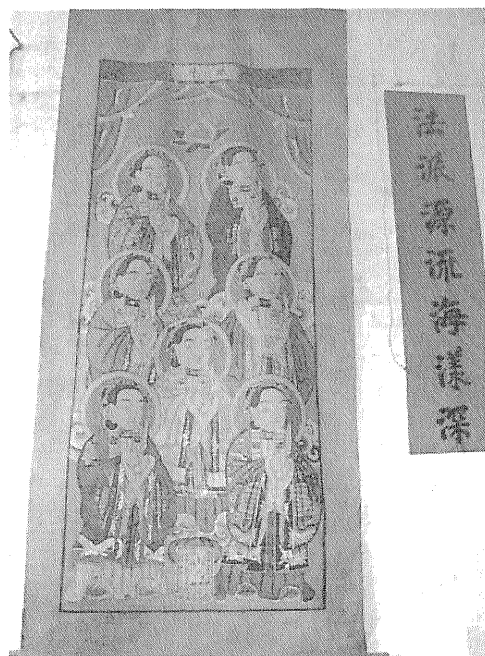 法派源流海漾深